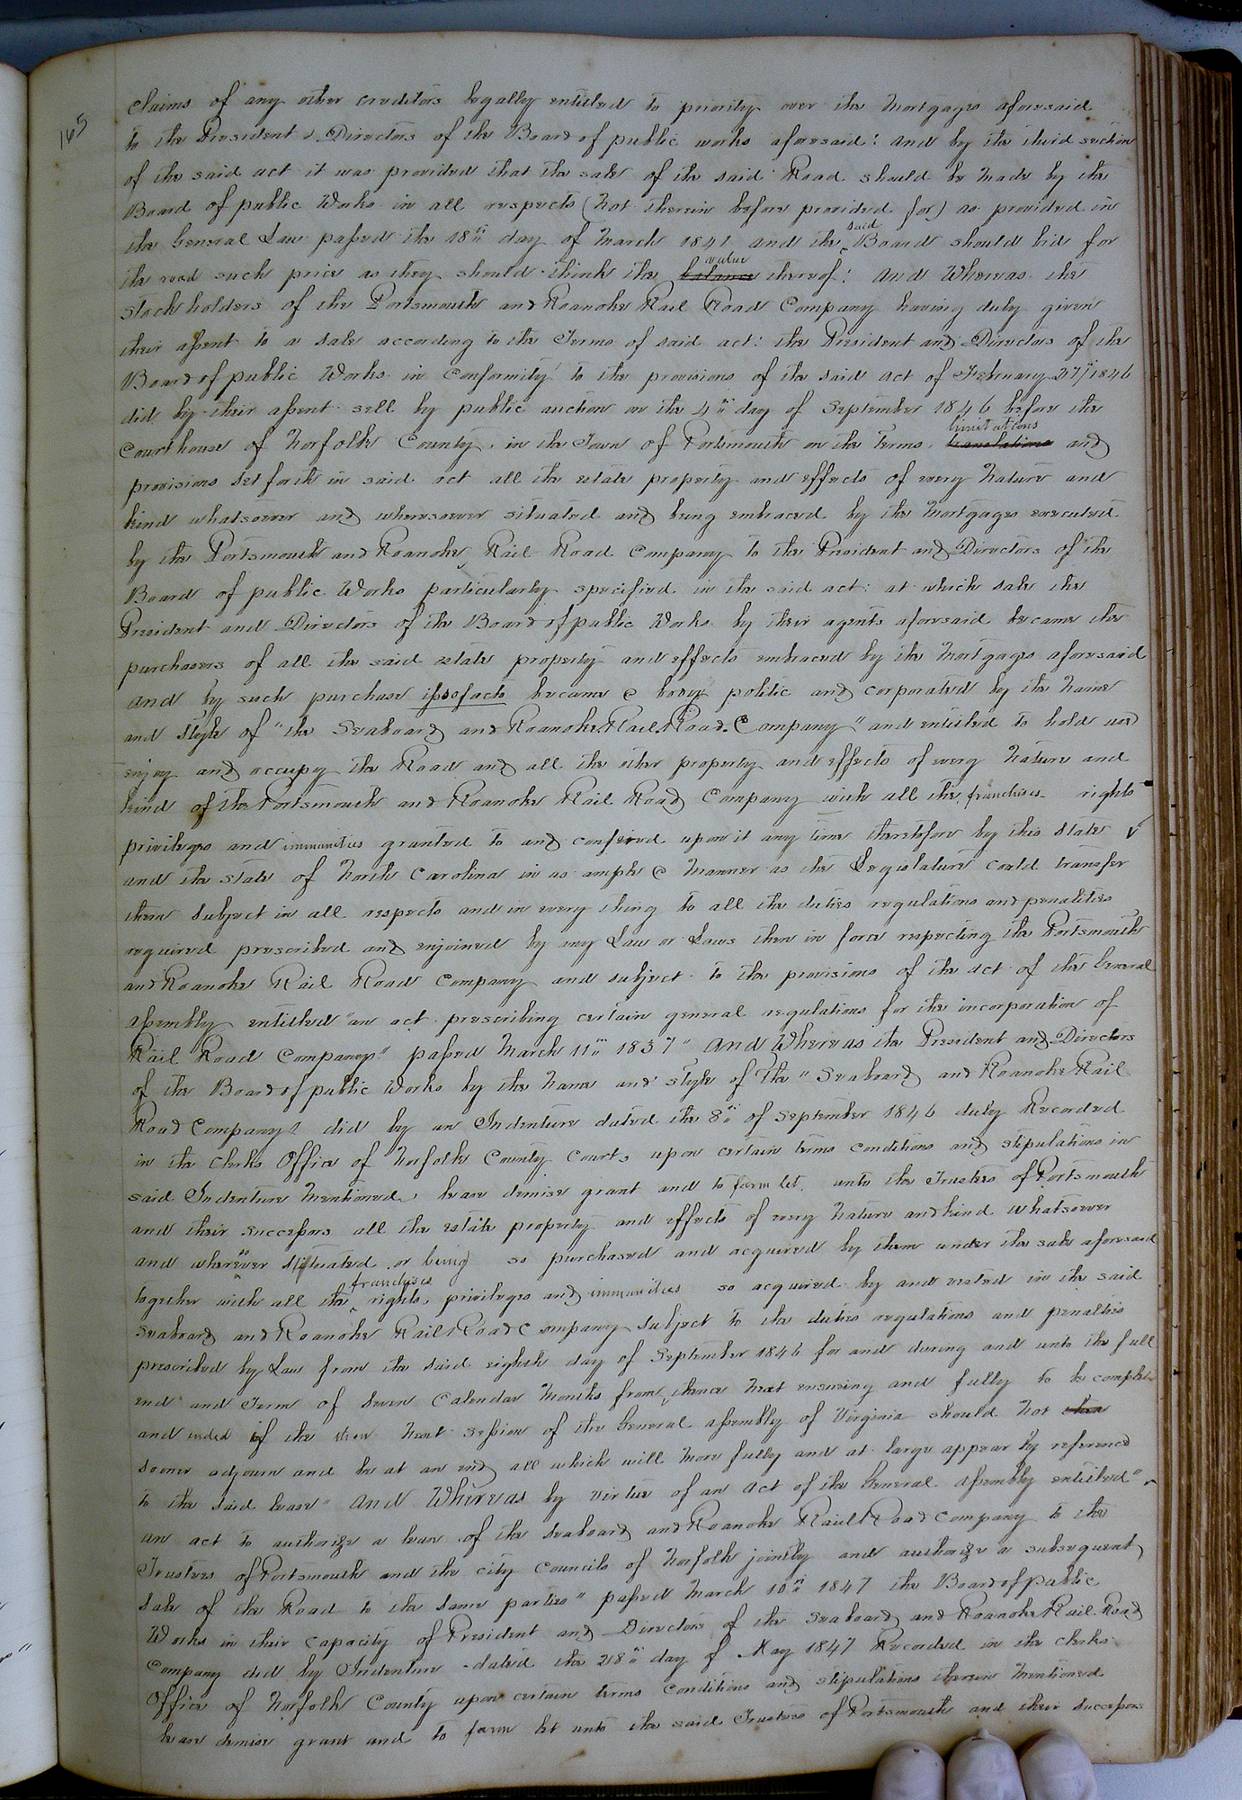 165
claims of any other creditors legally entitled to priority over the Mortgages aforesaid
to the President & Directors of the Board of public works aforesaid: and by the third section
of the said act it was provided that the sale of the said Road should be made by the
Board of public Works in all respects (Not therein before provided for) as provided in
the General Law passed the 18th day of March 1841 and the said Board should bid for
the road such price as they should think the balance value thereof: And Whereas the
stockholders of the Portsmouth and Roanoke Rail Road Company having duly given
their assent to a sale according to the Terms of said act: the President and Directors of the
Board of public Works in Conformity to the provisions of the said act of February 27th 1846
did by their assent sell by public auction on the 4th day of September 1846 before the
Courthouse of Norfolk County in the Town of Portsmouth on the terms translations limitations and
provisions set forth in said act all the estate property and effects of every Nature and
kind whatsoever and wheresoever situated and being embraced by the Mortgages executed
by the Portsmouth and Roanoke Rail Road Company to the President and Directors of the
Board of public Works particularly specified in the said act: at which sale the
President and Directors of the Board of public Works by their agents aforesaid became the
purchasers of all the said estate property and effects embraced by the Mortgages aforesaid
and by such purchase ipsofacto became a body politic and corporated by the Name
and style of "the Seaboard and Roanoke Rail Road Company" and entitled to hold use
enjoy and occupy the Road and all the other property and effects of every Nature and
kind of the Portsmouth and Roanoke Rail Road Company with all the franchises rights
privileges and immunities granted to and conferred upon it any time theretofore by this State
and the State of North Carolina in as ample a Manner as the Legislature could transfer
them subject in all respects and in every thing to all the duties regulations and penalties
required prescribed and enjoined by any Law or Laws then in force respecting the Portsmouth
and Roanoke Rail Road Company and subject to the provisions of the act of the General
assembly entitled "an act prescribing certain general regulations for the incorporation of
Rail Road Companys" passed March 11th 1837" And Whereas the President and Directors
of the Board of public Works by the Name and style of The "Seaboard and Roanoke Rail
Road Company" did by an Indenture dated the 8th of September 1846 duly Recorded
in the Clerks Office of Norfolk County Court, upon certain terms conditions and stipulations in
said Indenture Mentioned, lease demise grant and to farm let unto the Trustees of Portsmouth
and their successors all the estate property and effects of every Nature and kind whatsoever
and wherever situated or being so purchased and acquired by them under the sale aforesaid
together with all the franchises rights, privileges and immunities so acquired by and vested in the said
Seaboard and Roanoke Rail Road Company subject to the duties regulations and penalties
prescribed by Law from the said eighth day of September 1846 for and during and unto the full
end and Term of Seven Calendar Months from thence Next ensuing and fully to be complete
and ended if the then Next session of the General assembly of Virginia should Not then
sooner adjourn and be at an end, all which will More fully and at large appear by reference
to the said lease" And Whereas by virtue of an act of the General Assembly entitled"
an act to authorize a lease of the Seaboard and Roanoke Rail Road Company to the
Trustees of Portsmouth and the city Councils of Norfolk jointly and authorize a subsequent
Sale of the Road to the same parties" passed March 10th 1847 the Board of public
Works in their capacity of President and Directors of the Seaboard and Roanoke Rail Road
Company did by Indenture dated the 28th day of May 1847 Recorded in the clerks
Office of Norfolk County upon certain terms conditions and stipulations therein Mentioned
lease demise grant and to farm let unto the said Trustees of Portsmouth and their successors